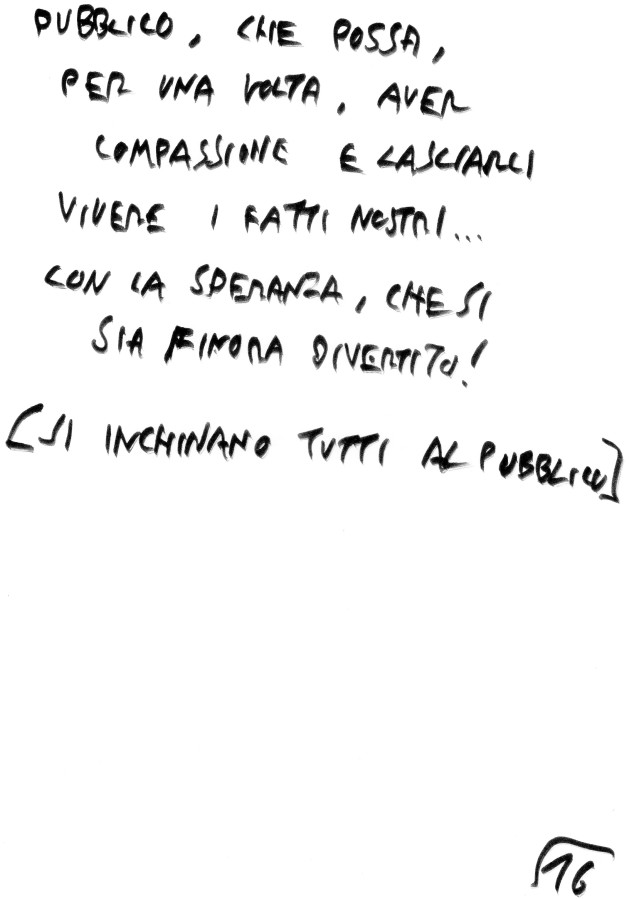 PUBBLICO, CHE POSSA,
PER UNA VOLTA, AVER
COMPASSIONE E LASCIARCI
VIVERE I FATTI NOSTRI...
CON LA SPERANZA, CHE SI
SIA FINORA DIVERTITO!
[SI INCHINANO TUTTI AL PUBBLICO]
16